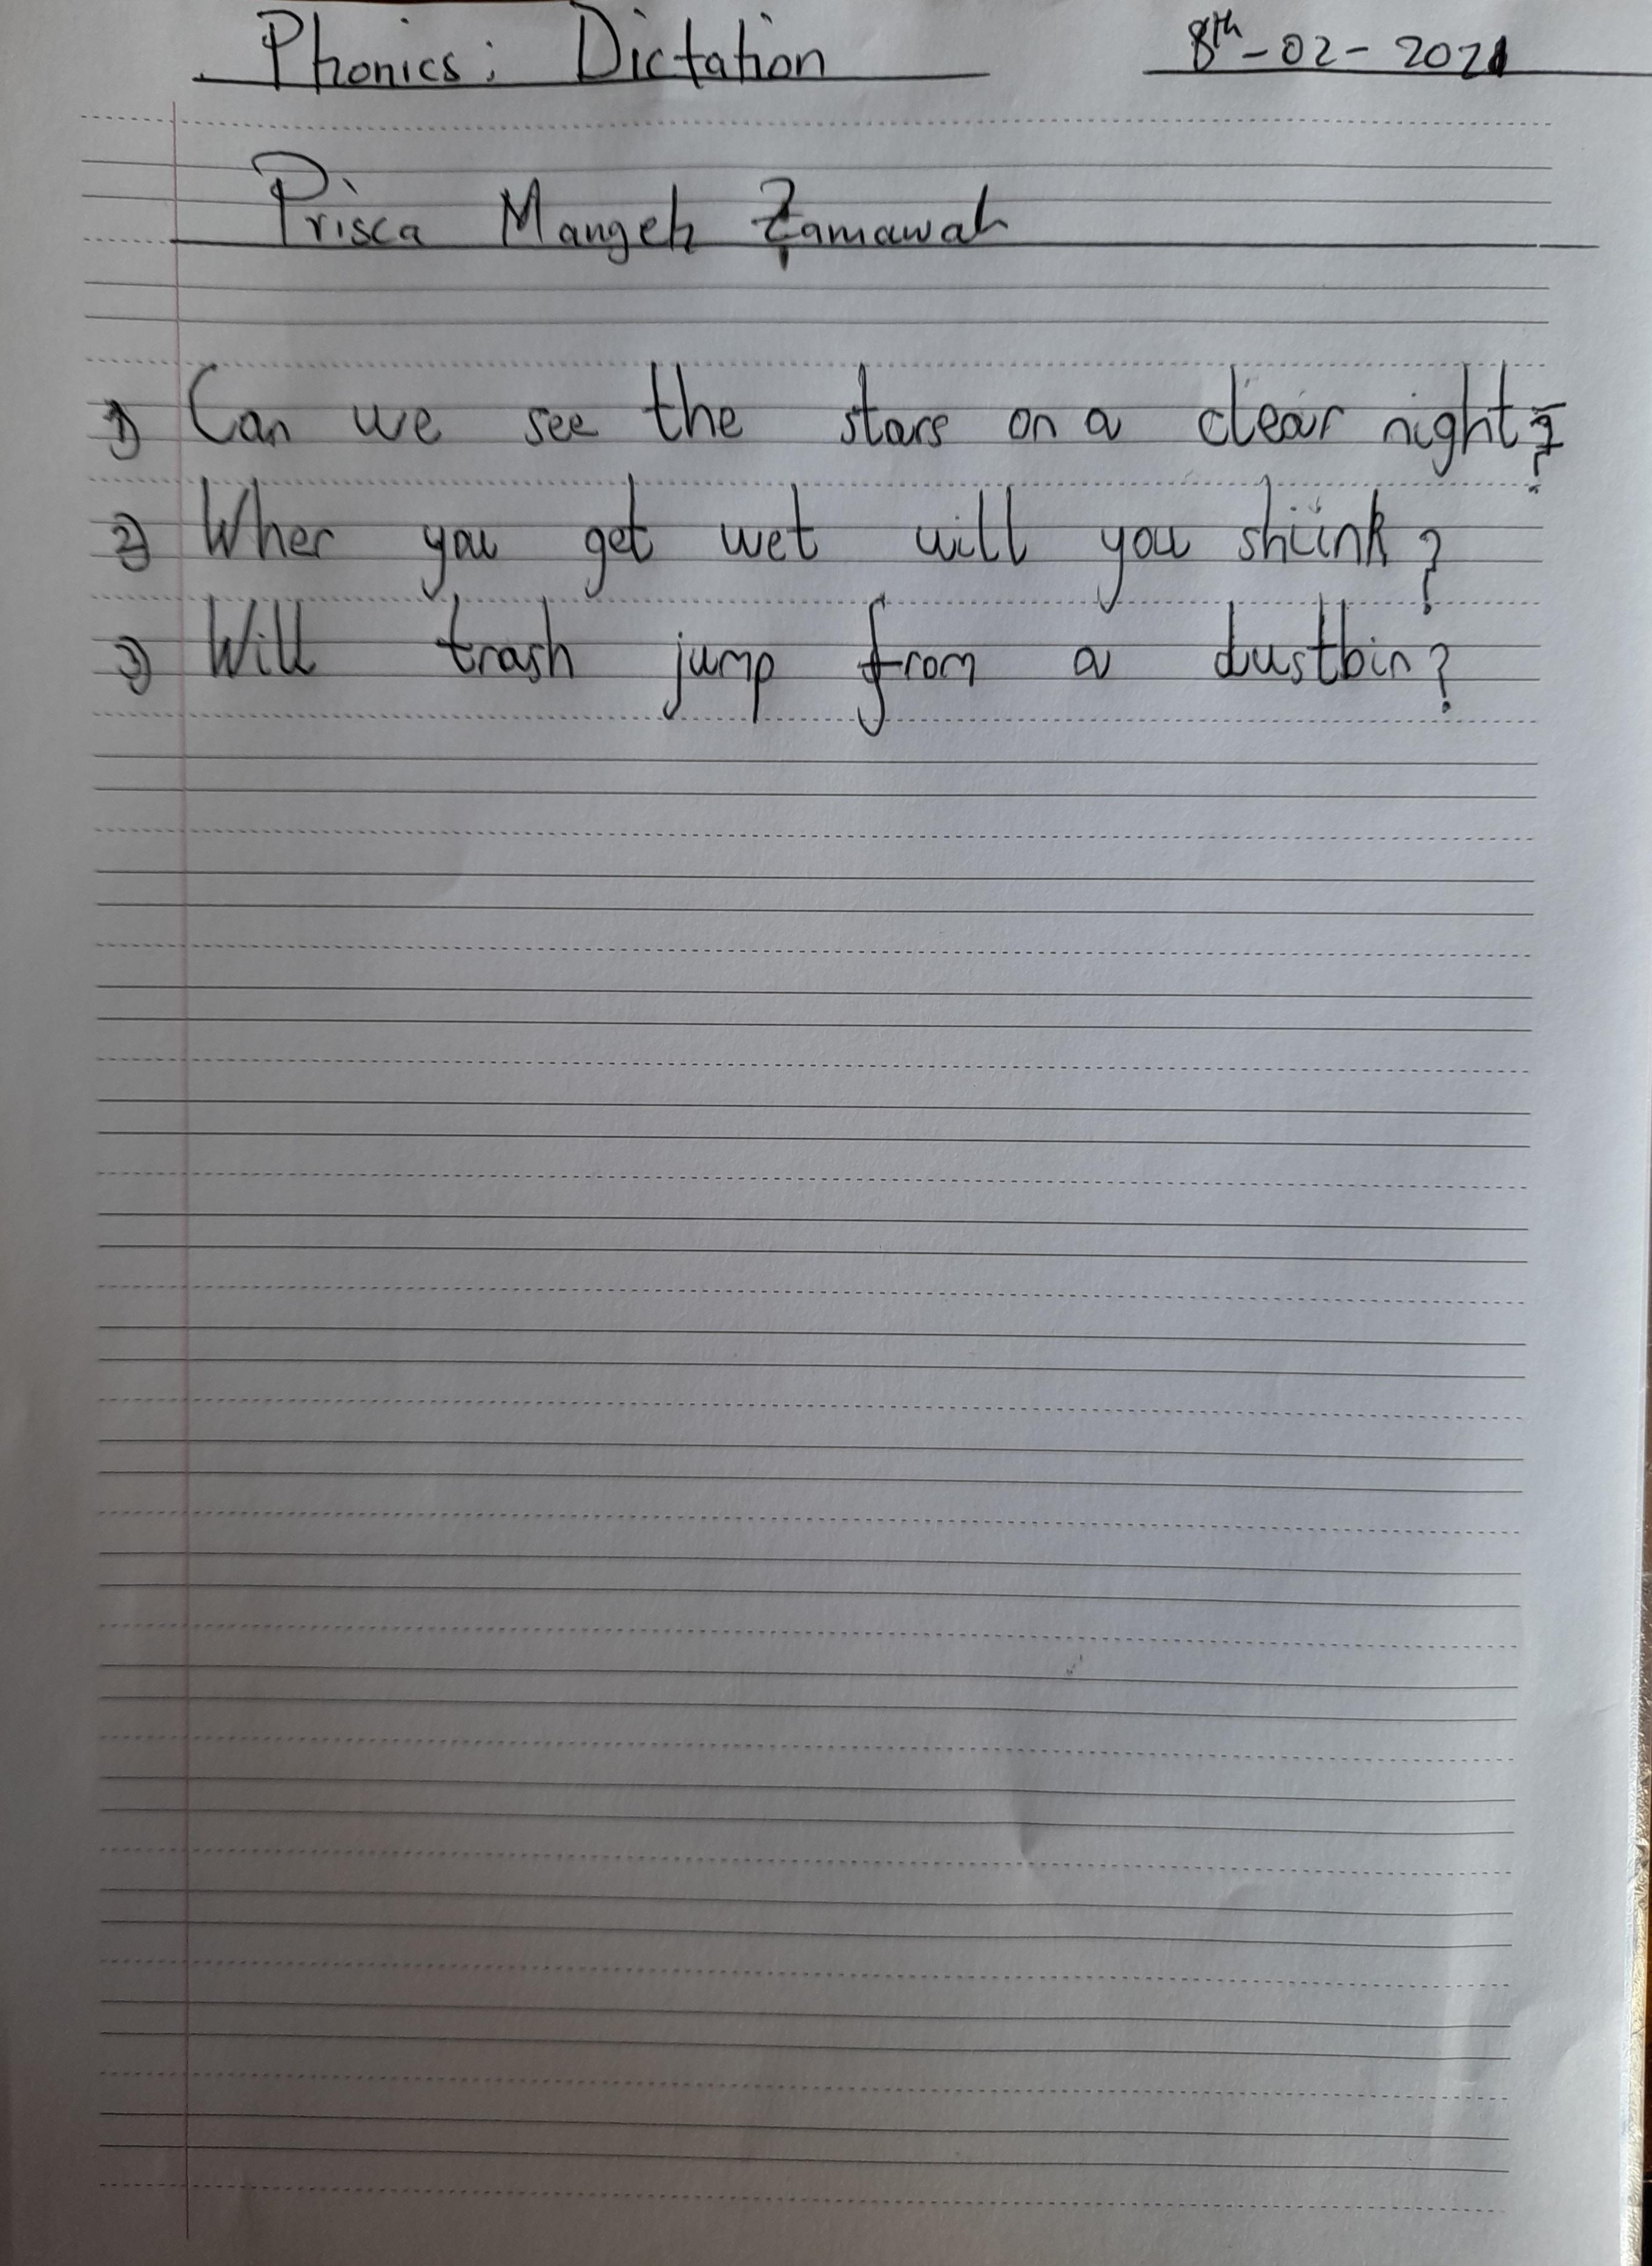 Phonics: Dictation 8th-02-2021
Prisca Mangeh Zamawah
1) Can we see the stars on a clear night?
2) When you get wet will you shiink?
3) Will trash jump from a dustbin?